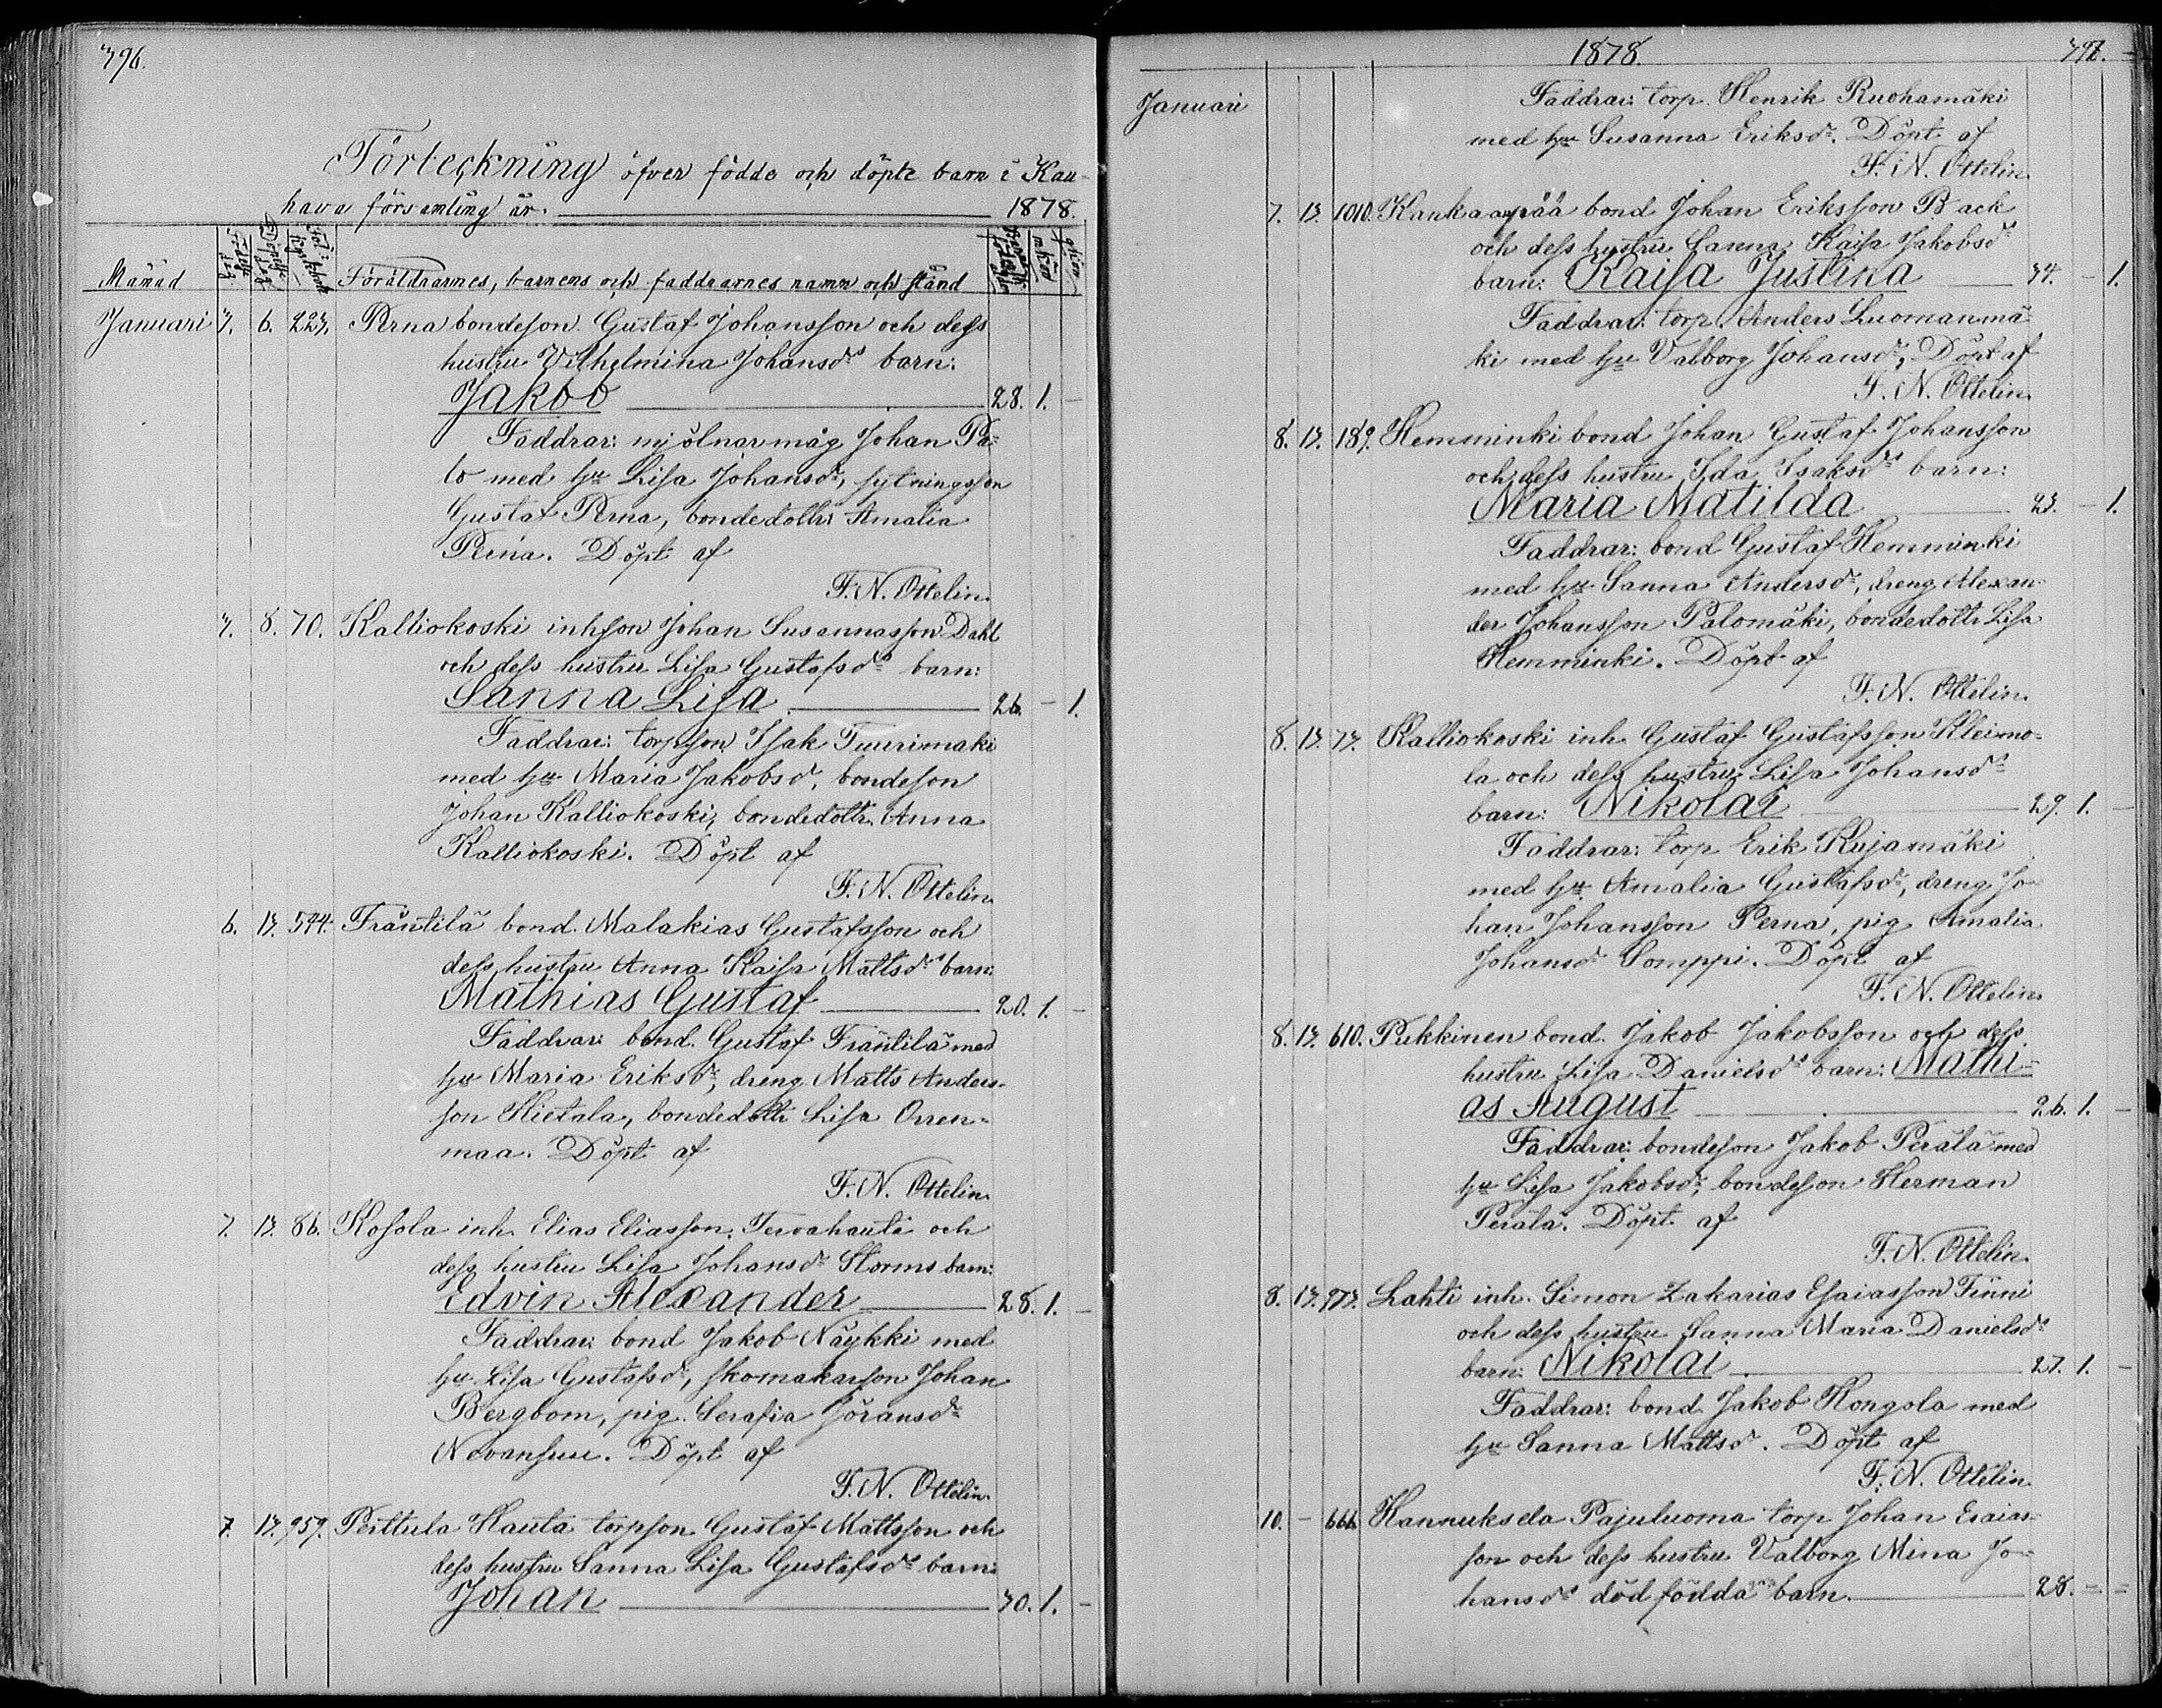 396.
Förteckning öfver födde och döpte barn i Kau-
hava församling år. 1878.
Månad Födelse dag Föräldrarnes, barnens och faddrarnes namn och stånd
Januari 3. 6. 223. Perna bondeson Gustaf Johansson och dess
hustru Vilhelmina Johansdr barn:
Jakob 28. 1. -
Faddrar: mjölnarmåg Johan Pa-
to med hu Lisa Johansdr, sytningsson
Gustaf Perna, bondedottr Amalia
Perna. Döpt af
F. N. Ottelin.
3. 8. 70. Kalliokoski inhson Johan Susannasson Dahl
och dess hustru Lisa Gustafsdr barn:
Sanna Lisa 26. - 1.
Faddrar: torpson Isak Tuurimaki
med hu Maria Jakobsdr, bondeson
Johan Kalliokoski, bondedottr. Anna
Kalliokoski. Döpt af
F. N. Ottelin.
6. 13. 544. Fräntilä bond. Malakias Gustafsson och
dess hustru Anna Kaisa Mattsdr barn:
Mathias Gustaf 20. 1. -
Faddrar: bond. Gustaf Fräntilä med
hu Maria Eriksdr, dreng Matts Anders-
son Hietala, bondedottr Lisa Orren-
maa. Döpt af
F. N. Ottelin.
7. 13. 86. Kosola inh. Elias Eliasson Tervahauta och
dess hustru Lisa Johansdr Storms barn:
Edvin Alexander 28. 1. -
Faddrar: bond Jakob Näykki med
hu Lisa Gustafsdr, skomakarson Johan
Bergbom, pig. Serafia Jöransdr
Novansuu. Döpt af
F. N. Ottelin.
7. 13. 959. Perttula Hauta torpson Gustaf Mattsson och
dess hustru Sanna Lisa Gustafsdr barn:
Johan 30. 1. -
1878. 397.
Januari
Faddrar: torp. Henrik Ruohamäki
med hu Susanna Eriksdr. Döpt af
F. N. Ottelin.
7. 13. 1010. Kankaanpää bond Johan Eriksson Back
och dess hustru Carena Kaisa Jakobsdr
barn: Kaisa Justina 34. - 1.
Faddrar: torp. Anders Luomanmä-
ki med hu Valborg Johansdr, Döpt af
F. N. Ottelin.
8. 13. 189. Hemminki bond Johan Gustaf Johansson
och dess hustru Ida Isaksdr barn:
Maria Matilda 23. - 1.
Faddrar: bond Gustaf Hemminki
med hu Sanna Andersdr, dreng Alexan-
der Johansson Palomäki, bondedottr Lisa
Hemminki. Döpt af
F. N. Ottelin.
8. 13. 73. Kalliokoski inh. Gustaf Gustafsson Kleimo-
la och dess hustru Lisa Johansdr
barn: Nikolai 29. 1. -
Faddrar: torp Erik Kujamäki
med hu Amalia Gustafsdr, dreng Jo-
han Johansson Perna, pig Amalia
Johansdr Somppi. Döpt af
F. N. Ottelin.
8. 13. 610. Pukkinen bond. Jakob Jakobsson och dess
hustru Lisa Danielsdr barn: Mathi-
as August 26. 1. -
Faddrar: bondeson Jakob Perälä med
hu Lisa Jakobsdr, bondeson Herman
Perälä. Döpt af
F. N. Ottelin.
8. 13. 973. Lahti inh. Simon Zakarias Esaiasson Finni
och dess hustru Sanna Maria Danielsdr
barn: Nikolai 27. 1. -
Faddrar: bond Jakob Kongola med
hu Sanna Mattsdr. Döpt af
F. N. Ottelin.
10. - 666. Hannuksela Pajuluoma torp Johan Esaias-
son och dess hustru Valborg Mina Jo-
hansdr död födda barn. 28. - -